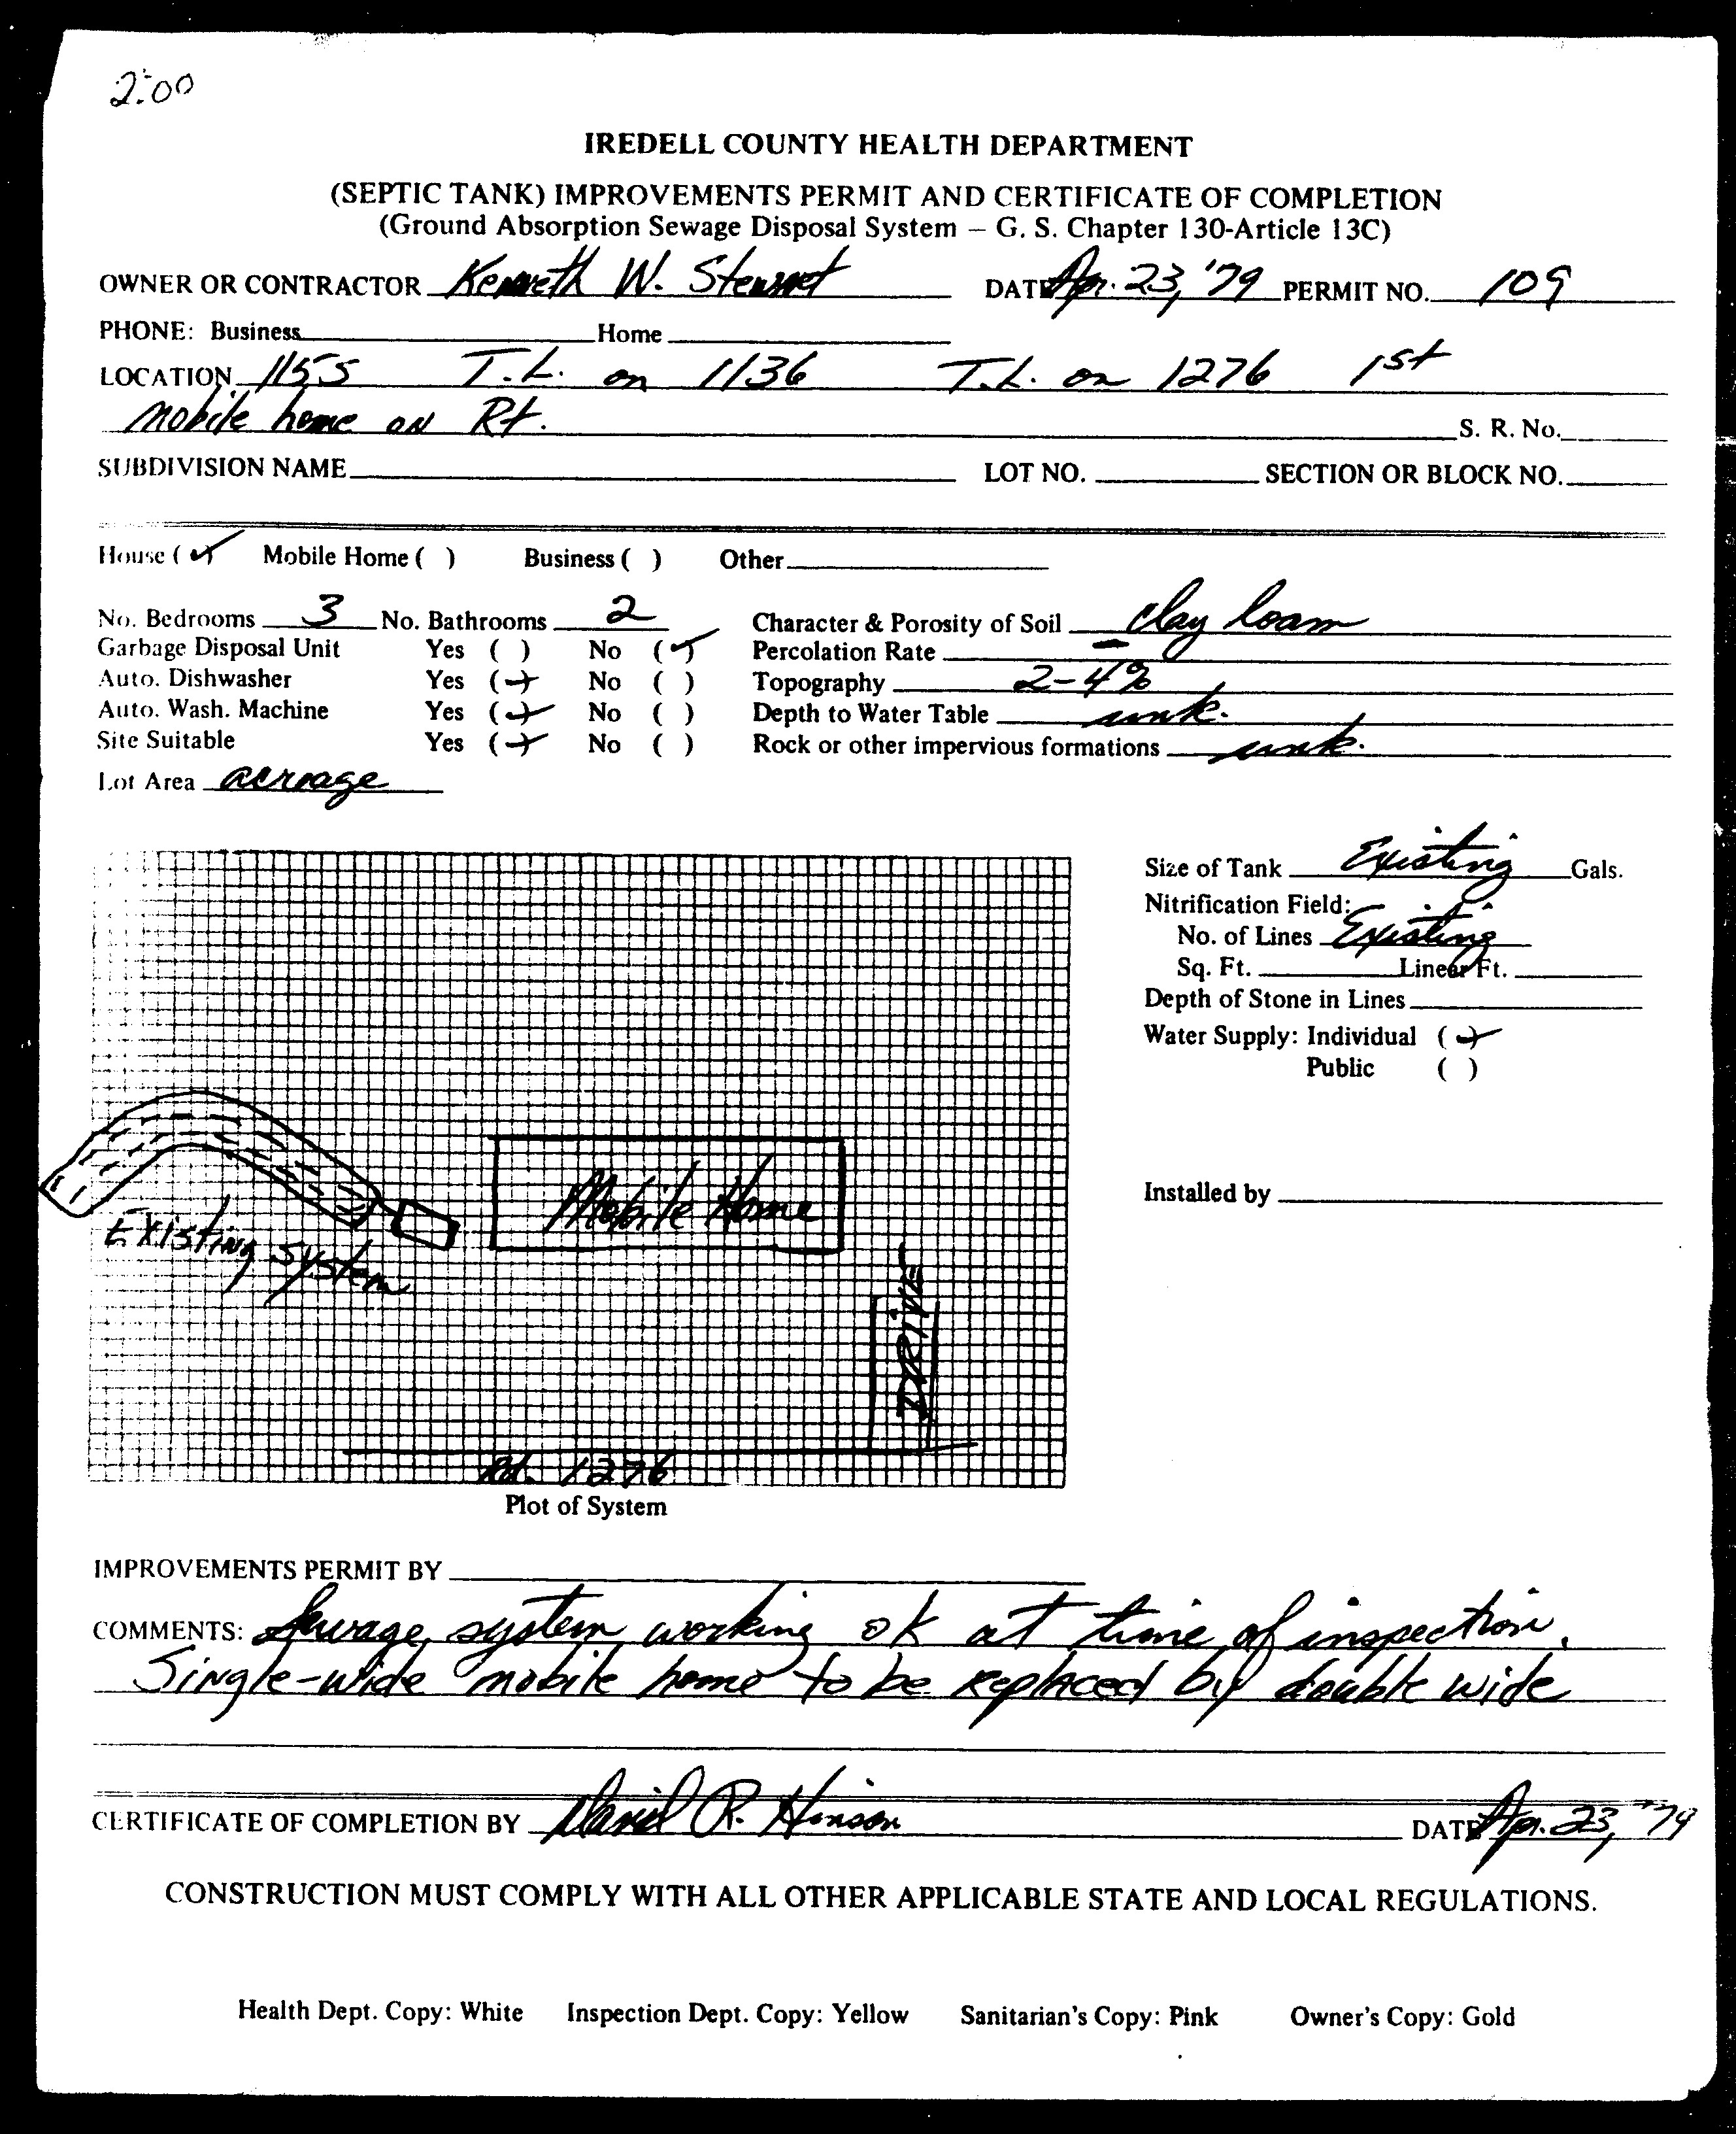 2:00
IREDELL COUNTY HEALTH DEPARTMENT
(SEPTIC TANK) IMPROVEMENTS PERMIT AND CERTIFICATE OF COMPLETION
(Ground Absorption Sewage Disposal System – G. S. Chapter 130-Article 13C)
OWNER OR CONTRACTOR Kenneth W. Stewart DATE Apr. 23, '79 PERMIT NO. 109
PHONE: Business Home
LOCATION 1155 T.L. on 1136 T.L. on 1276 1st
mobile home on Rt. S. R. No.
SUBDIVISION NAME LOT NO. SECTION OR BLOCK NO.
House (✓) Mobile Home ( ) Business ( ) Other
No. Bedrooms 3 No. Bathrooms 2 Character & Porosity of Soil clay loam
Garbage Disposal Unit Yes ( ) No (✓) Percolation Rate –
Auto. Dishwasher Yes (✓) No ( ) Topography 2-4%
Auto. Wash. Machine Yes (✓) No ( ) Depth to Water Table unk.
Site Suitable Yes (✓) No ( ) Rock or other impervious formations unk.
Lot Area acreage
Size of Tank Existing Gals.
Nitrification Field:
No. of Lines Existing
Sq. Ft. Linear Ft.
Depth of Stone in Lines
Water Supply: Individual (✓)
Public ( )
Mobile Home
Installed by
Existing System
DRIVE
Rd. 1276
Plot of System
IMPROVEMENTS PERMIT BY
COMMENTS: Sewage system working ok at time of inspection.
Single-wide mobile home to be replaced by double wide
CERTIFICATE OF COMPLETION BY David R. Hinson DATE Apr. 23, '79
CONSTRUCTION MUST COMPLY WITH ALL OTHER APPLICABLE STATE AND LOCAL REGULATIONS.
Health Dept. Copy: White Inspection Dept. Copy: Yellow Sanitarian's Copy: Pink Owner's Copy: Gold